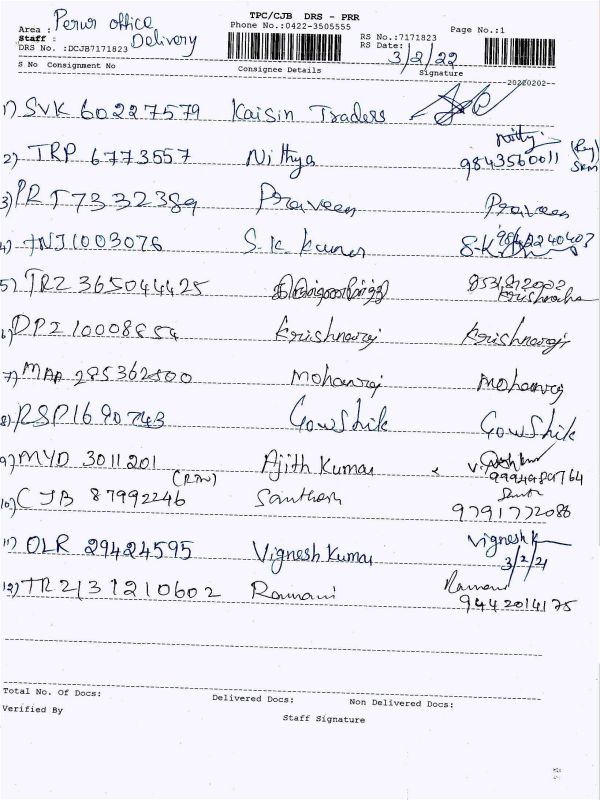 TPC/CJB DRS - PRR
Area : Perur office
Phone No.:0422-3505555
Page No.:1
Staff : Delivery
RS No.:7171823
DRS No. :DCJB7171823
RS Date: 3/2/22
S No Consignment No Consignee Details Signature
20220202
1) SVK 60227579 Kaisin Traders
2) TRP 6773557 Nithya 9843560011
3) PRT 7332389 Praveen Praveen
4) TNJ1003076 S.K. Kumar
5) TRZ 365044425
6) DPI 10008854 Krishnaraj Krishnaraj
7) MAA 285362500 Mohanraj Mohanraj
8) RSP1690743 Gowshik Gowshik
9) MYD 3011201 Ajith Kumar
10) CJB 87992246 Santhosh 9791772086
11) OLR 29424595 Vignesh Kumar Vignesh K
3/2/21
12) TRZ131210602 Ramani Ramani
9442014175
Total No. Of Docs: Delivered Docs: Non Delivered Docs:
Verified By
Staff Signature